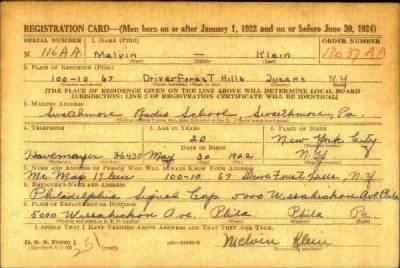 REGISTRATION CARD—(Men born on or after January 1, 1922 and on or before June 30, 1924)
SERIAL NUMBER 1. NAME (Print) ORDER NUMBER
N 116AA Melvin — Klein 13037AA
2. PLACE OF RESIDENCE (Print)
100-10 67 Drive Forest Hills Queens N.Y
[THE PLACE OF RESIDENCE GIVEN ON THE LINE ABOVE WILL DETERMINE LOCAL BOARD
JURISDICTION; LINE 2 OF REGISTRATION CERTIFICATE WILL BE IDENTICAL]
3. MAILING ADDRESS
Swarthmore Radio School Swarthmore, Pa.
4. TELEPHONE 5. AGE IN YEARS 6. PLACE OF BIRTH
20 New York City
DATE OF BIRTH
Havemeyer 36430 May 30 1922 N.Y.
7. NAME AND ADDRESS OF PERSON WHO WILL ALWAYS KNOW YOUR ADDRESS
Klein 100-10 67 Drive Forest Hills, N.Y
8. EMPLOYER'S NAME AND ADDRESS
Philadelphia Signal Corp. 5000 Wissahickon Ave. Phila
9. PLACE OF EMPLOYMENT OR BUSINESS
5000 Wissahickon Ave. Phila Phila Pa.
I AFFIRM THAT I HAVE VERIFIED ABOVE ANSWERS AND THAT THEY ARE TRUE.
D. S. S. Form 1
Melvin Klein